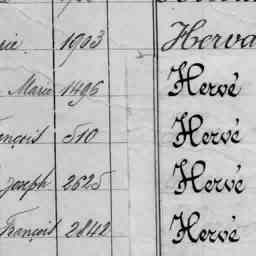 rie 1903 Herva
Marie 1496 Hervé
ançois 510 Hervé
Joseph 2625 Hervé
François 2842 Hervé